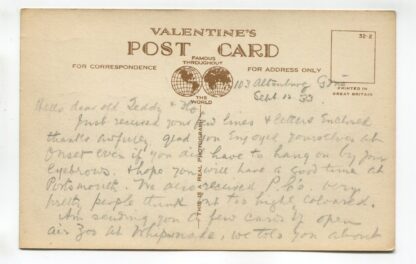 VALENTINE'S
POST CARD
32-2
FOR CORRESPONDENCE
FAMOUS
THROUGHOUT
THE
WORLD
FOR ADDRESS ONLY
PRINTED IN
GREAT BRITAIN
THIS IS A REAL PHOTOGRAPH
103 Altenburg Gdns
Sept 12 33
Hello dear old Teddy & Flo
Just received your few lines & letters Enclosed
thanks awfully, glad you Enjoyed yourselves at
Onset even if you did have to hang on by your
Eyebrows. I hope you will have a good time at
Portsmouth. We also received P. Cs. very
pretty people think too high coloured.
Am sending you a few cards of open
air Zoo at Whipsnade, we told you about